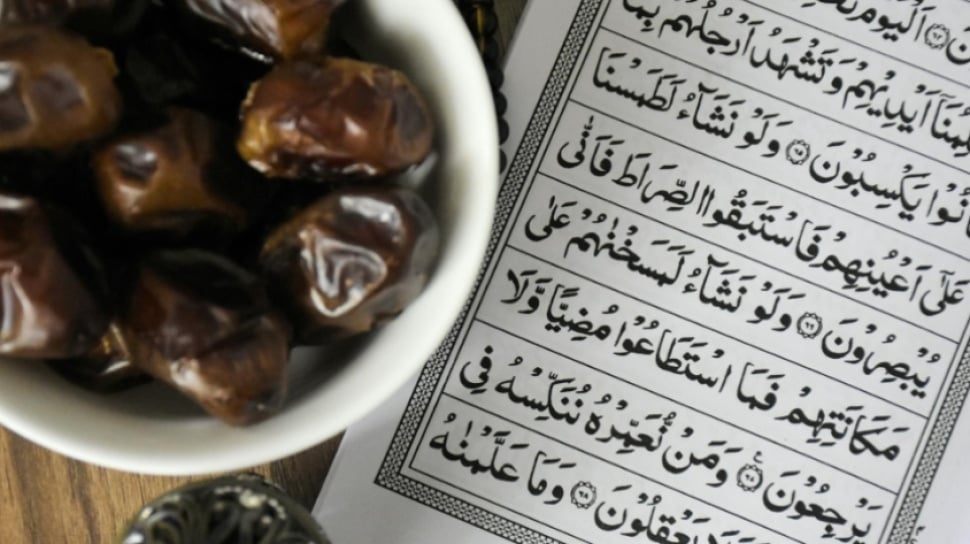 اَلْيَوْمَ
اَيْدِيْهِمْ وَتَشْهَدُ اَرْجُلُهُمْ بِمَا
يَكْسِبُوْنَ ۝٦٥ وَلَوْ نَشَآءُ لَطَمَسْنَا
عَلٰٓى اَعْيُنِهِمْ فَاسْتَبَقُوا الصِّرَاطَ فَاَنّٰى
يُبْصِرُوْنَ ۝٦٦ وَلَوْ نَشَآءُ لَمَسَخْنٰهُمْ عَلٰى
مَكَانَتِهِمْ فَمَا اسْتَطَاعُوْا مُضِيًّا وَّلَا
يَرْجِعُوْنَ ۝٦٧ وَمَنْ نُّعَمِّرْهُ نُنَكِّسْهُ فِى
يَعْقِلُوْنَ ۝٦٨ وَمَا عَلَّمْنٰهُ